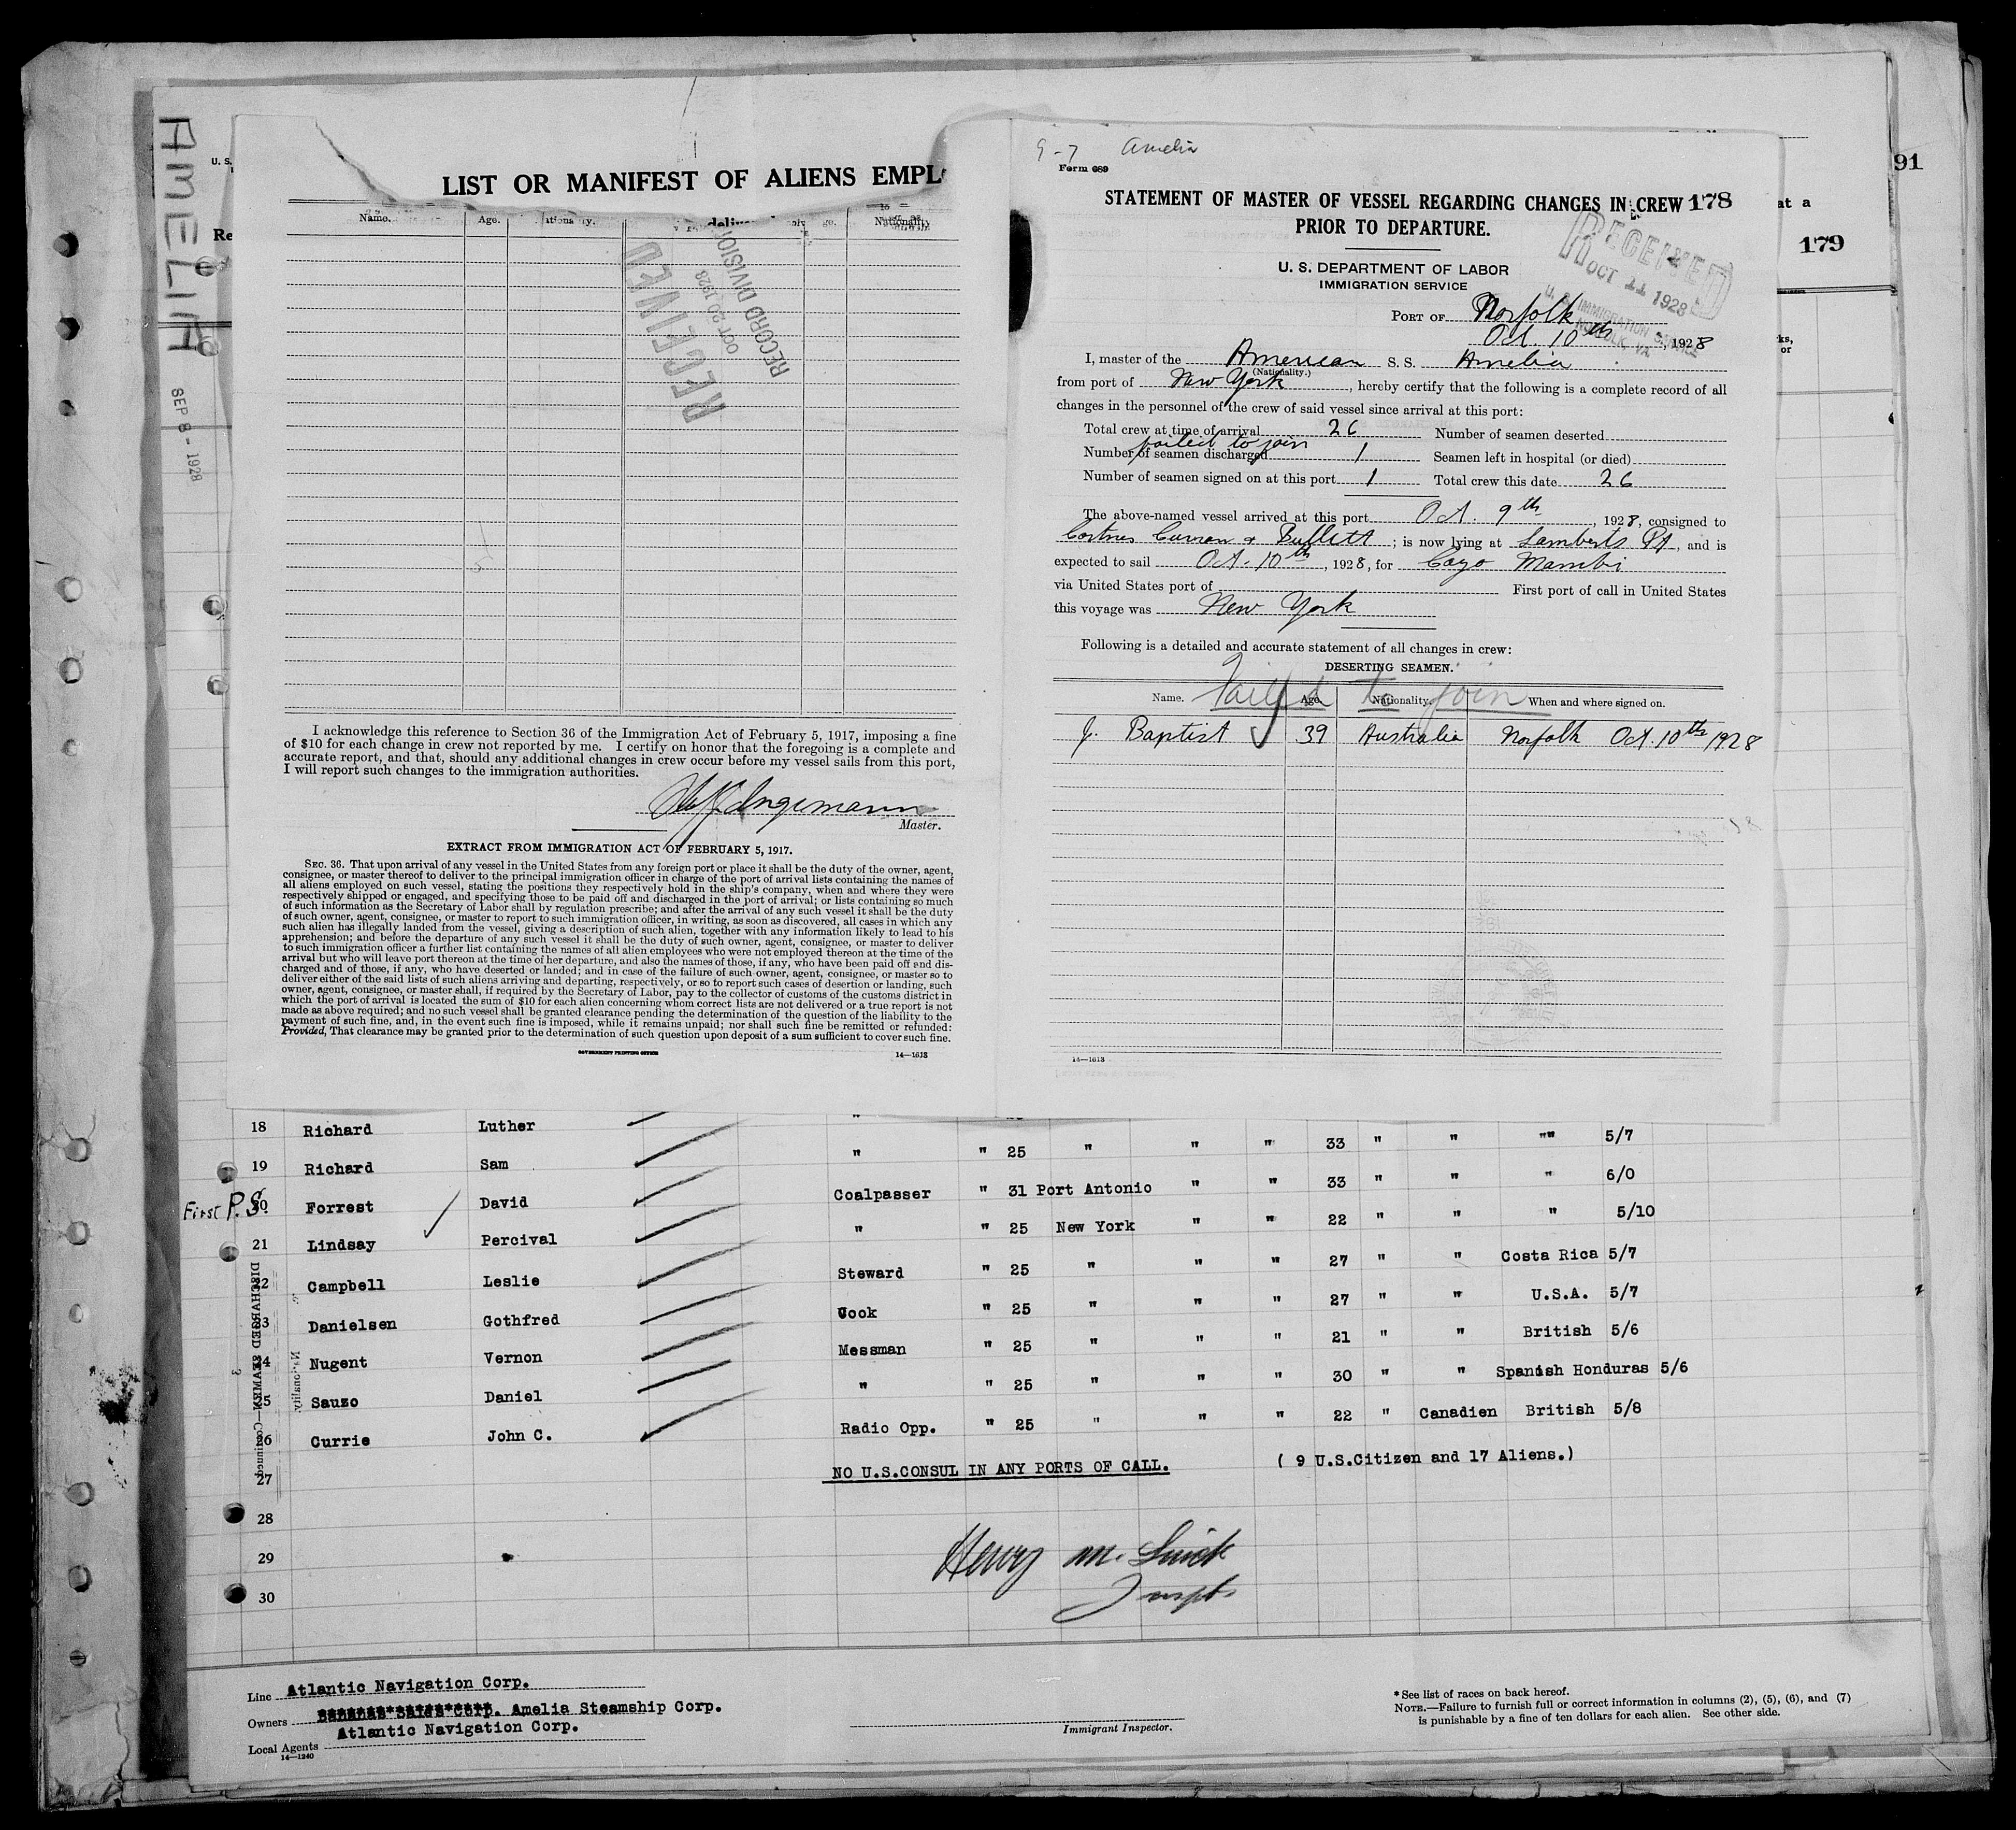 AMELIA
SEP 8 - 1928
U. S.
Re
91
at a
179
ks,
or
LIST OR MANIFEST OF ALIENS EMPL
Name. Age. Nationality
RECEIVED
OCT 20 1928
RECORD DIVISION
I acknowledge this reference to Section 36 of the Immigration Act of February 5, 1917, imposing a fine
of $10 for each change in crew not reported by me. I certify on honor that the foregoing is a complete and
accurate report, and that, should any additional changes in crew occur before my vessel sails from this port,
I will report such changes to the immigration authorities.
Ingemann
Master.
EXTRACT FROM IMMIGRATION ACT OF FEBRUARY 5, 1917.
SEC. 36. That upon arrival of any vessel in the United States from any foreign port or place it shall be the duty of the owner, agent,
consignee, or master thereof to deliver to the principal immigration officer in charge of the port of arrival lists containing the names of
all aliens employed on such vessel, stating the positions they respectively hold in the ship's company, when and where they were
respectively shipped or engaged, and specifying those to be paid off and discharged in the port of arrival; or lists containing so much
of such information as the Secretary of Labor shall by regulation prescribe; and after the arrival of any such vessel it shall be the duty
of such owner, agent, consignee, or master to report to such immigration officer, in writing, as soon as discovered, all cases in which any
such alien has illegally landed from the vessel, giving a description of such alien, together with any information likely to lead to his
apprehension; and before the departure of any such vessel it shall be the duty of such owner, agent, consignee, or master to deliver
to such immigration officer a further list containing the names of all alien employees who were not employed thereon at the time of the
arrival but who will leave port thereon at the time of her departure, and also the names of those, if any, who have been paid off and dis-
charged and of those, if any, who have deserted or landed; and in case of the failure of such owner, agent, consignee, or master so to
deliver either of the said lists of such aliens arriving and departing, respectively, or so to report such cases of desertion or landing, such
owner, agent, consignee, or master shall, if required by the Secretary of Labor, pay to the collector of customs of the customs district in
which the port of arrival is located the sum of $10 for each alien concerning whom correct lists are not delivered or a true report is not
made as above required; and no such vessel shall be granted clearance pending the determination of the question of the liability to the
payment of such fine, and, in the event such fine is imposed, while it remains unpaid; nor shall such fine be remitted or refunded:
Provided, That clearance may be granted prior to the determination of such question upon deposit of a sum sufficient to cover such fine.
GOVERNMENT PRINTING OFFICE 14—1613
9-7 Amelia
Form 689
STATEMENT OF MASTER OF VESSEL REGARDING CHANGES IN CREW 178
PRIOR TO DEPARTURE.
U. S. DEPARTMENT OF LABOR
IMMIGRATION SERVICE
RECEIVED
OCT 11 1928
U. S. IMMIGRATION SERVICE
NORFOLK, VA
PORT OF Norfolk
Oct. 10th, 1928
I, master of the American S. S. Amelia
(Nationality.)
from port of New York, hereby certify that the following is a complete record of all
changes in the personnel of the crew of said vessel since arrival at this port:
Total crew at time of arrival 26 Number of seamen deserted
failed to join
Number of seamen discharged 1 Seamen left in hospital (or died)
Number of seamen signed on at this port 1 Total crew this date 26
The above-named vessel arrived at this port Oct. 9th, 1928, consigned to
Curran & Bullitt; is now lying at Lamberts Pt, and is
expected to sail Oct. 10th, 1928, for Cayo Mambi
via United States port of First port of call in United States
this voyage was New York
Following is a detailed and accurate statement of all changes in crew:
DESERTING SEAMEN.
Failed to join
Name. Age. Nationality. When and where signed on.
J. Baptist 39 Australia Norfolk Oct. 10th 1928
14—1613
18 Richard Luther "
19 Richard Sam " " 25 " " " 33 " " "" 5/7
First P.S. 20 Forrest David Coalpasser " 31 Port Antonio " " 33 " " " 6/0
21 Lindsay Percival " " 25 New York " " 22 " " " 5/10
22 Campbell Leslie Steward " 25 " " " 27 " " Costa Rica 5/7
23 Danielsen Gothfred Cook " 25 " " " 27 " " U.S.A. 5/7
24 Nugent Vernon Messman " 25 " " " 21 " " British 5/6
25 Sauzo Daniel " " 25 " " " 30 " " Spanish Honduras 5/6
26 Currie John C. Radio Opp. " 25 " " " 22 " Canadien British 5/8
27 NO U.S.CONSUL IN ANY PORTS OF CALL. ( 9 U.S.Citizen and 17 Aliens.)
28
29
30
DISCHARGED SEAMEN—Continued
Nationality.
Henry M.
Inspt.
Line Atlantic Navigation Corp.
Owners Amelia Steamship Corp.
Atlantic Navigation Corp.
Local Agents
14—1240
Immigrant Inspector.
* See list of races on back hereof.
NOTE.—Failure to furnish full or correct information in columns (2), (5), (6), and (7)
is punishable by a fine of ten dollars for each alien. See other side.